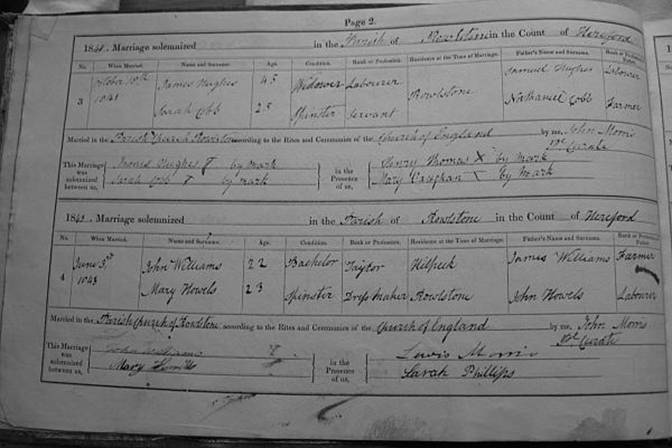 Page 2.
1841. Marriage solemnized in the Parish of Rowlstone in the Count of Hereford
No. When Married. Name and Surname. Age. Condition. Rank or Profession. Residence at the Time of Marriage. Father's Name and Surname. Rank or Profession of Father.
3 October 10th 1841 James Hughes 45 Widower Labourer Rowlstone Samuel Hughes Labourer
Sarah Cobb 25 Spinster Servant Nathaniel Cobb Farmer
Married in the Parish Church Rowlstone according to the Rites and Ceremonies of the Church of England by me, John Morris
Pl. Curate
This Marriage was solemnized between us, James Hughes by mark
Sarah Cobb by mark
in the Presence of us, Henry Thomas X by mark
Mary Vaughan X by mark
1843. Marriage solemnized in the Parish of Rowlstone in the Count of Hereford
No. When Married. Name and Surname. Age. Condition. Rank or Profession. Residence at the Time of Marriage. Father's Name and Surname. Rank or Profession of Father.
4 June 3rd 1843 John Williams 22 Bachelor Taylor Kilpeck James Williams Farmer
Mary Howels 23 Spinster Dress Maker Rowlstone John Howels Labourer
Married in the Parish Church of Rowlstone according to the Rites and Ceremonies of the Church of England by me, John Morris
Pl. Curate
This Marriage was solemnized between us, John Williams
Mary Howells
in the Presence of us, Lewis Morris
Sarah Phillips